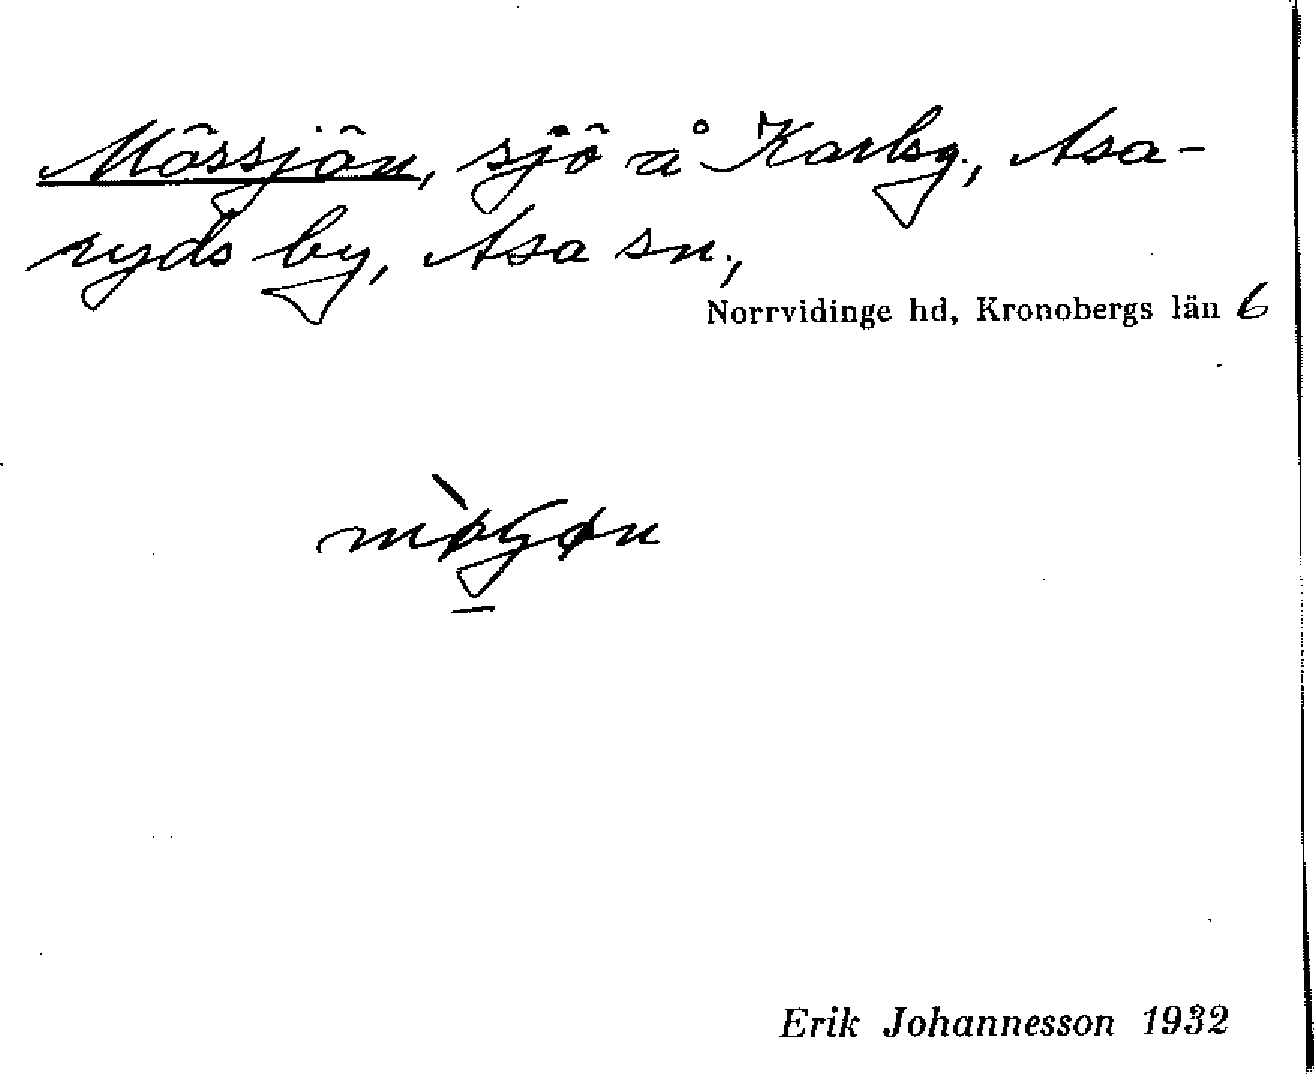 Mössjön, sjö å Karlsg., Asa-
ryds by, Asa sn.,
Norrvidinge hd, Kronobergs län 6
Erik Johannesson 1932